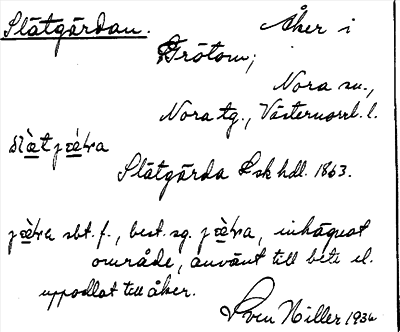 Slåtgärdan. Åker i
Grötom,
Nora sn.,
Nora tg., Västernorrl. l.
slå̀tjæ̀ra
Slåtgärda Lsk hdl. 1863.
jæ̀ra sbt. f., best. sg. jæ̀ra, inhägnat
område, använt till bete el.
uppodlat till åker.
Sven Hiller 1934